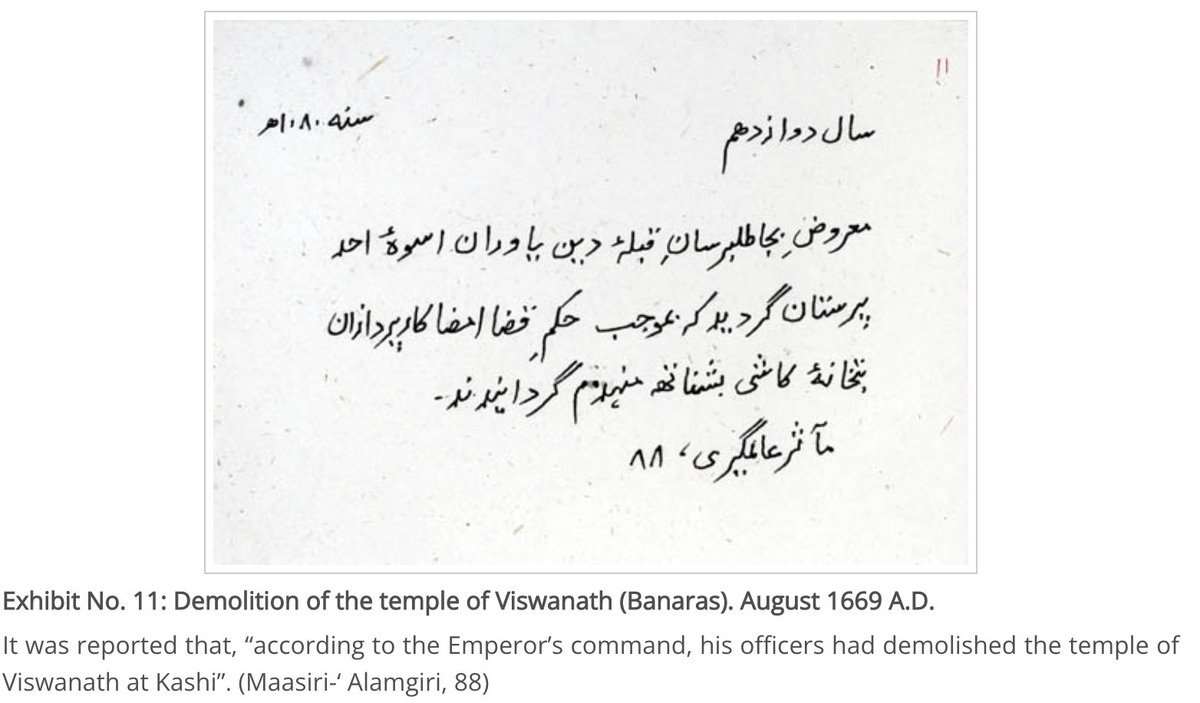 ۱۱
سال دوازدهم سنه ۱۰۸۰ھ
معروضِ بجا طلبرسانِ قبلۂ دین یاوران اسوۂ احد
پرستان گردید که بموجب حکمِ قضا امضا کارپردازان
بتخانۂ کاشی بشناتھ منهدم گردانیدند۔
مآثر عالمگیری، ۸۸
Exhibit No. 11: Demolition of the temple of Viswanath (Banaras). August 1669 A.D.
It was reported that, “according to the Emperor’s command, his officers had demolished the temple of
Viswanath at Kashi”. (Maasiri-‘ Alamgiri, 88)